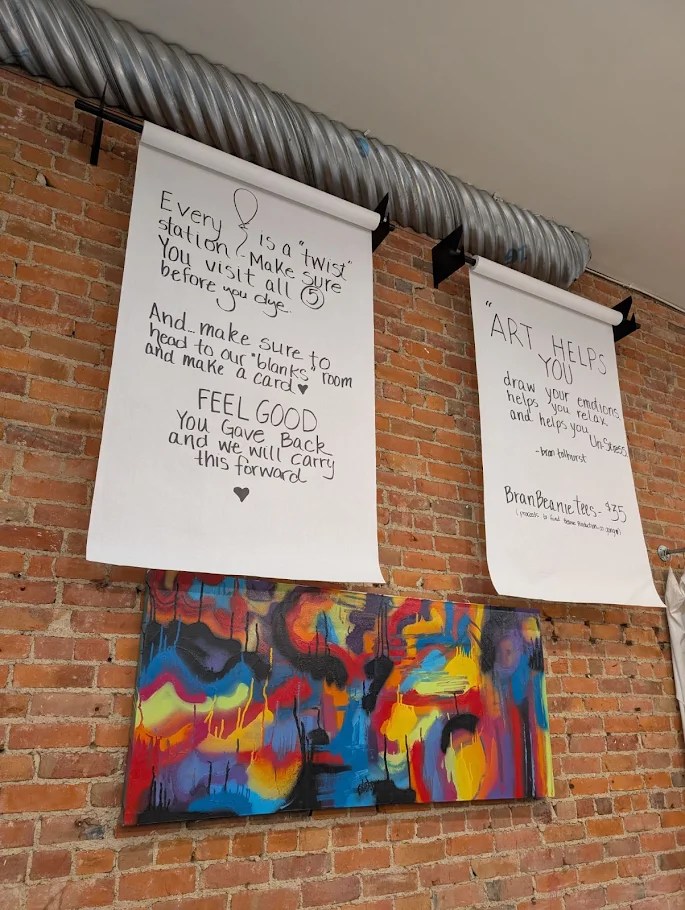 Every is a "twist"
station! - Make sure
You visit all 5
before you dye.
And... make sure to
head to our "blanks" room
and make a card ♥
FEEL GOOD
You Gave Back
and we will carry
this forward
♥
"ART HELPS
YOU
draw your emotions
helps you relax
and helps you
Un-Stress
- bran tolhurst
BranBeanie tees - $35
(proceeds to fund Beanie Production